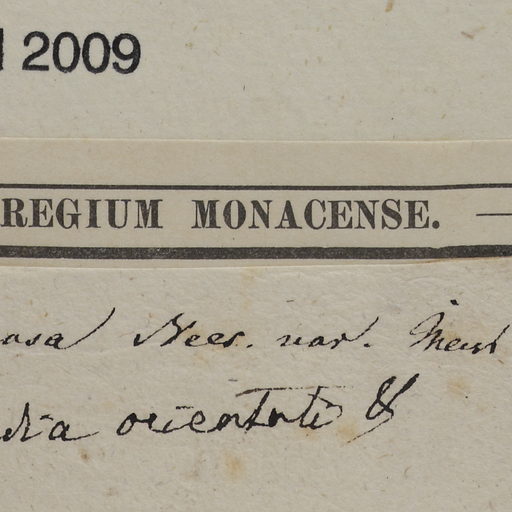 2009
REGIUM MONACENSE. —
osa Nees. var.
dia orientali &